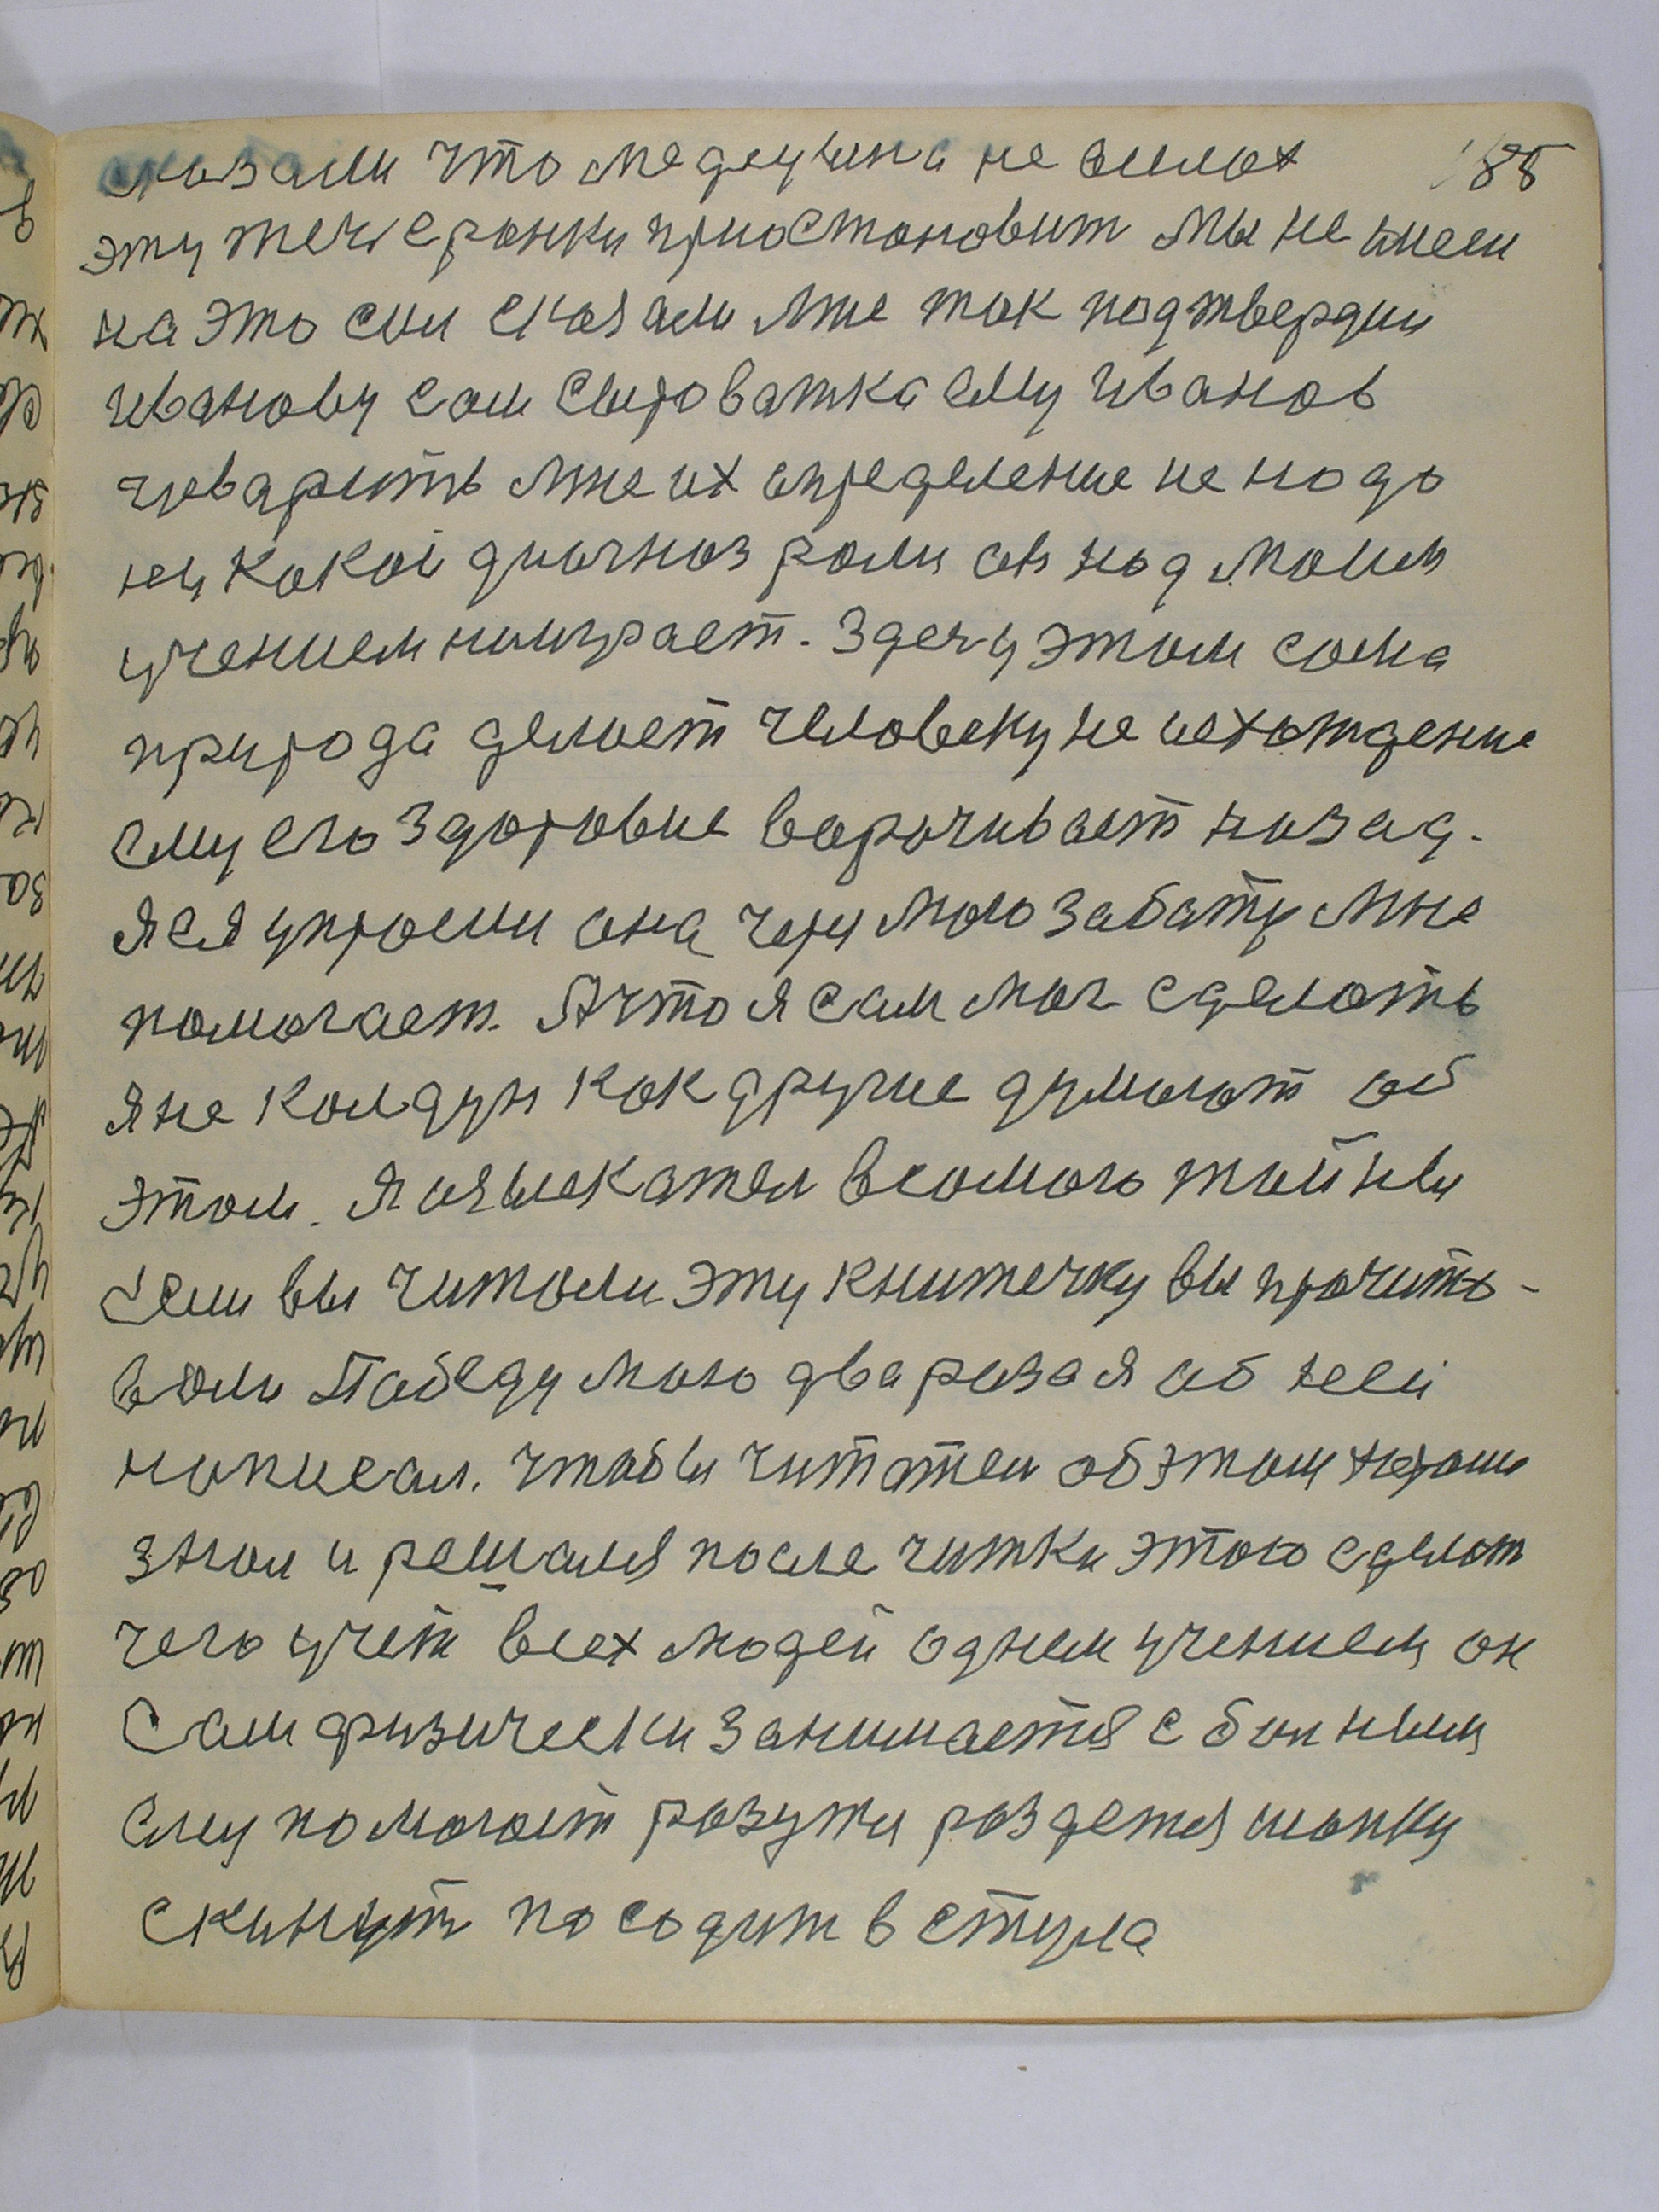 сказали что медецина не вилах 188
эту теч с ранки приостоновит мы не имеем
на это сил сказали мне так подтвердил
Иванову сам Сыроватка ему Иванов
гаварить мне их определение не надо
ни какои диагноз роли он над моим
учением ниıграет. Здесь у этом сама
природа делает человеку не исхождение
ему его здоровие ворочивает назад.
Я ея упросил она через мою забату мне
помогает. А что я сам мог сделать
я не колдун как другие думают об
этом. Я изыскател всомого тайны
Если вы читали эту книжечку вы прочита-
вали Победу мою два раза я об неи
написал. Чтобы читател об этом хорошо
знал и решался после читки этого сделат
чего учит всех людей однем учением он
Сам физически занимается с болным
Ему помогает разутся раздется шапку
скинут посодит в стула